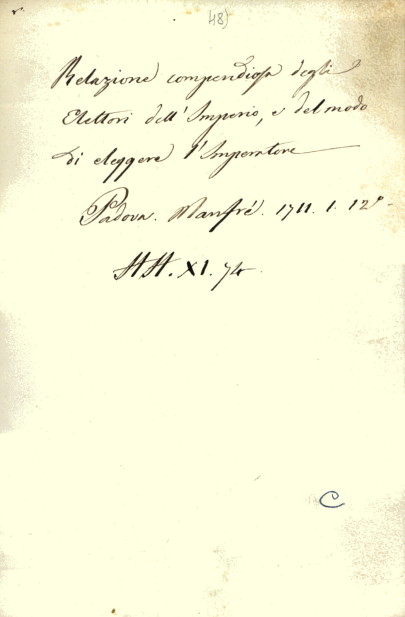 48)
Relazione compendiosa degli
Elettori dell'Imperio, e del modo
di eleggere l'Imperatore
Padova. Manfré. 1711. 1. 12°
HH. XI. 74.
C